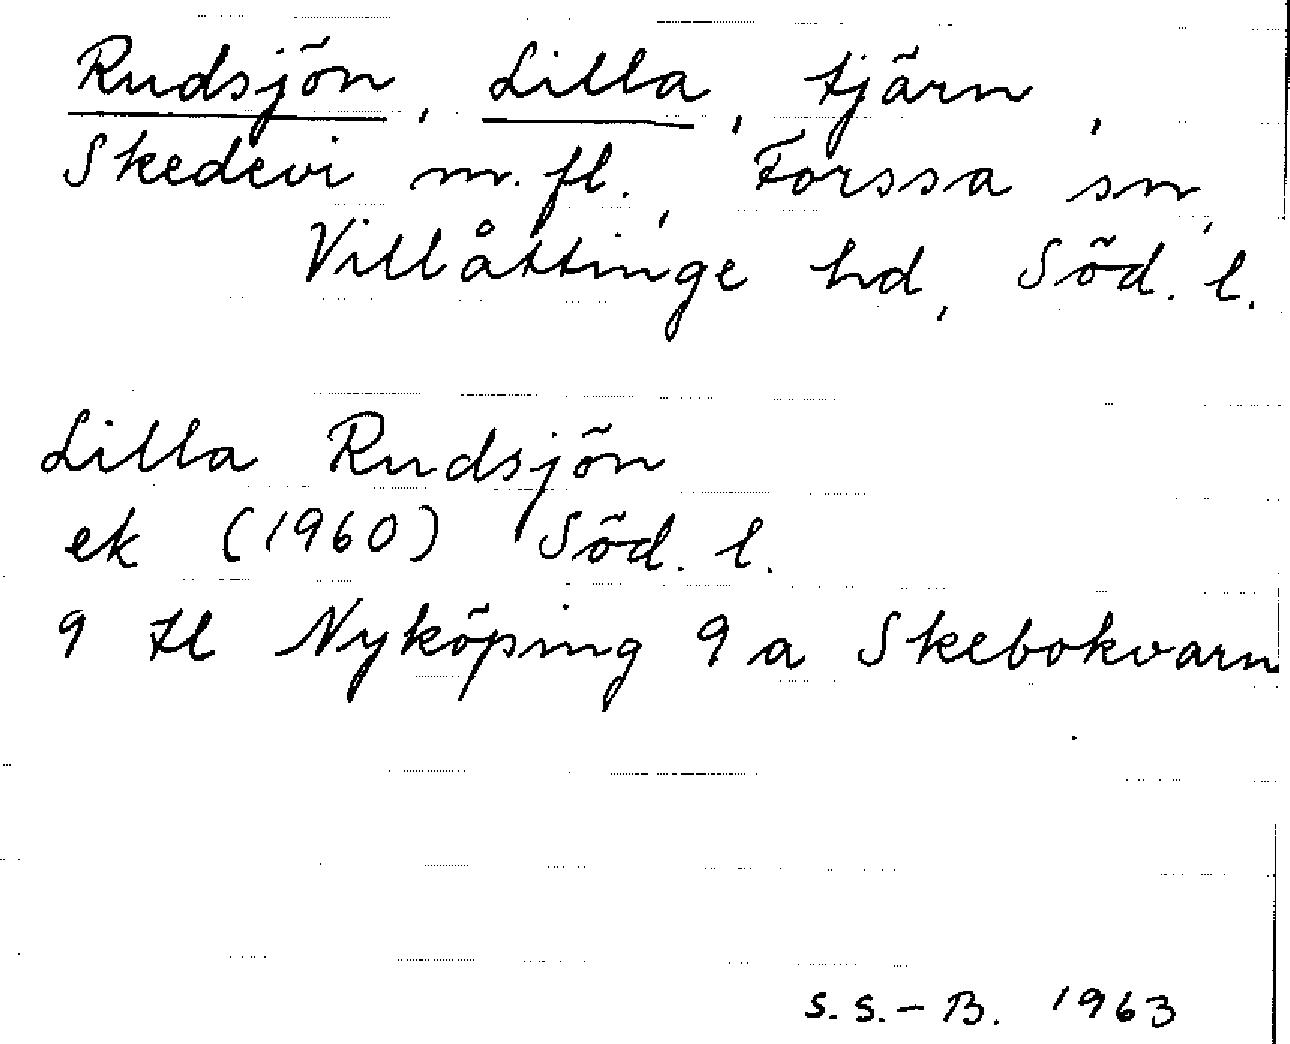 Rudsjön, Lilla, tjärn,
Skedevi m. fl., Forssa sn,
Villåttinge hd, Söd. l.
Lilla Rudsjön
ek (1960) Söd. l.
9 H Nyköping 9 a Skebokvarn
S. S.-B. 1963